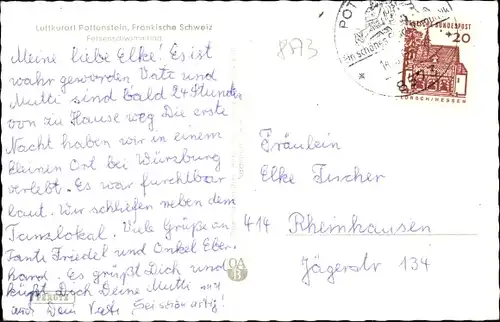 Luftkurort Pottenstein, Fränkische Schweiz
Felsenschwimmbad
Meine liebe Elke! Es ist
wahr geworden Vati und
Mutti sind bald 24 Stunden
von zu Hause weg Die erste
Nacht haben wir in einem
kleinen Ort bei Würzburg
verlebt. Es war furchtbar
laut. Wir schliefen neben dem
Tanzlokal. Viele Grüße an
Tante Friedel und Onkel Eber-
hard. Es grüßt Dich und
küßt Dich Deine Mutti
und Dein Vati Sei schön artig!
8573
POT
BUNDESPOST
20
LORSCH/HESSEN
Fräulein
Elke Fischer
414 Rheinhausen
Jägerstr 134